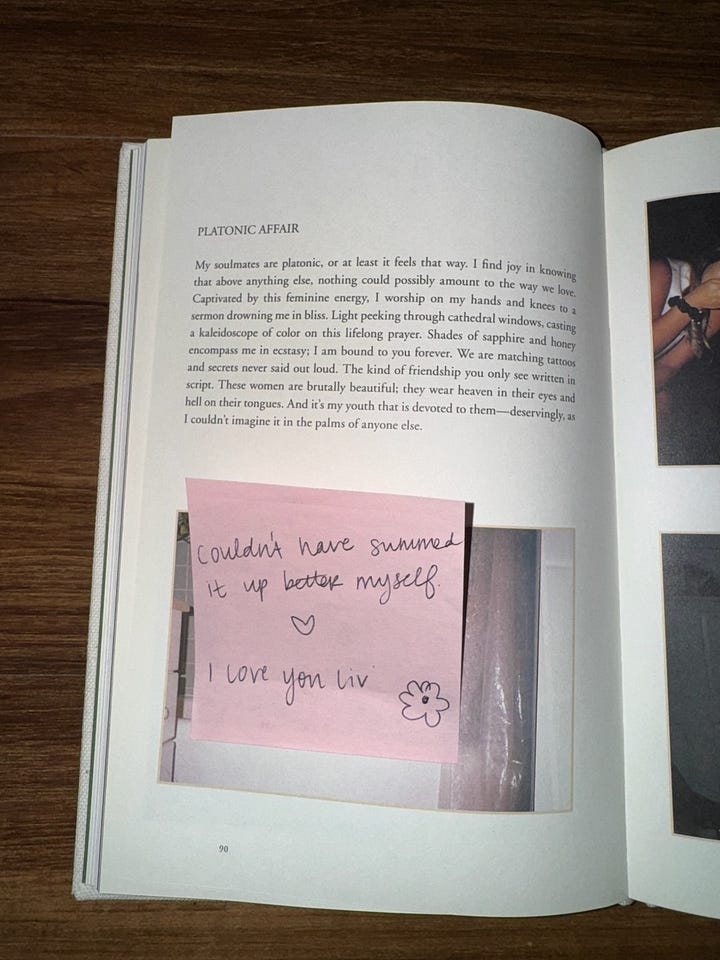 PLATONIC AFFAIR
My soulmates are platonic, or at least it feels that way. I find joy in knowing
that above anything else, nothing could possibly amount to the way we love.
Captivated by this feminine energy, I worship on my hands and knees to a
sermon drowning me in bliss. Light peeking through cathedral windows, casting
a kaleidoscope of color on this lifelong prayer. Shades of sapphire and honey
encompass me in ecstasy; I am bound to you forever. We are matching tattoos
and secrets never said out loud. The kind of friendship you only see written in
script. These women are brutally beautiful; they wear heaven in their eyes and
hell on their tongues. And it's my youth that is devoted to them—deservingly, as
I couldn't imagine it in the palms of anyone else.
Couldn't have summed
it up better myself.
I love you Liv
90